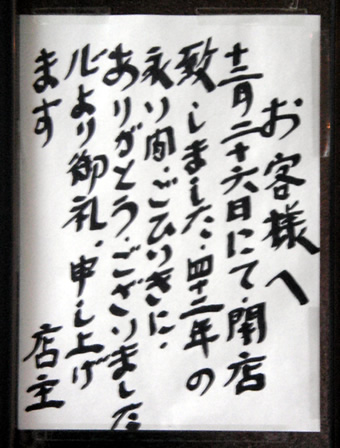 お客様へ
十二月二十六日にて・閉店
致しました・四十二年の
永い間・ごひいきに・
ありがとう・ございました
心より御礼・申し上げ
ます
店主